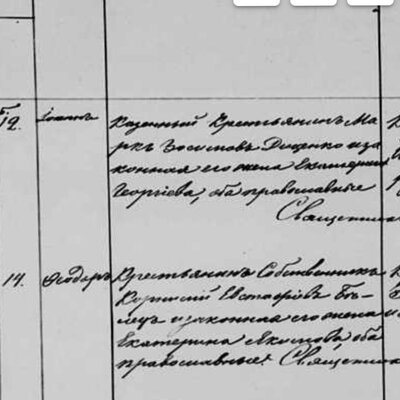 12. Іоаннъ Казенный Крестьянинъ Ма-
ркъ Диценко и за
конная его жена Екатерина
Георгіева, оба православные
Священник
14. Ѳеодоръ Крестьянинъ Собственникъ
Евстафіевъ
и законная его жена
Екатерина Якимова, оба
православные. Священник